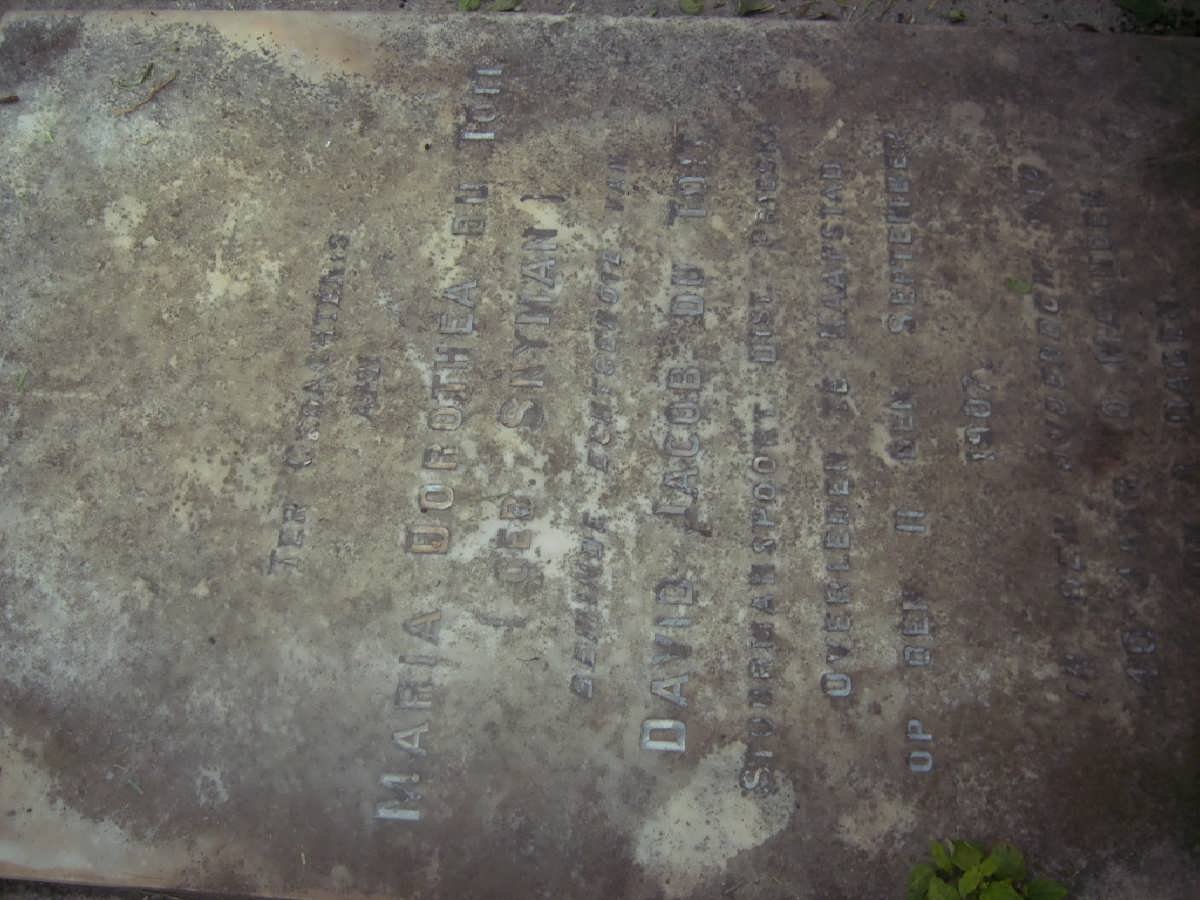 TER GEDACHTENIS
AAN
MARIA DOROTHEA DU TOIT
(GEB. SNYMAN)
BEMINDE ECHTGENOTE VAN
DAVID JACOB DU TOIT
DIST. PRIESKA
OVERLEDEN TE KAAPSTAD
OP DEN 11 DEN SEPTEMBER
1907
IN DEN OUDERDOM VAN
JAAR 9 MAANDEN
DAGEN